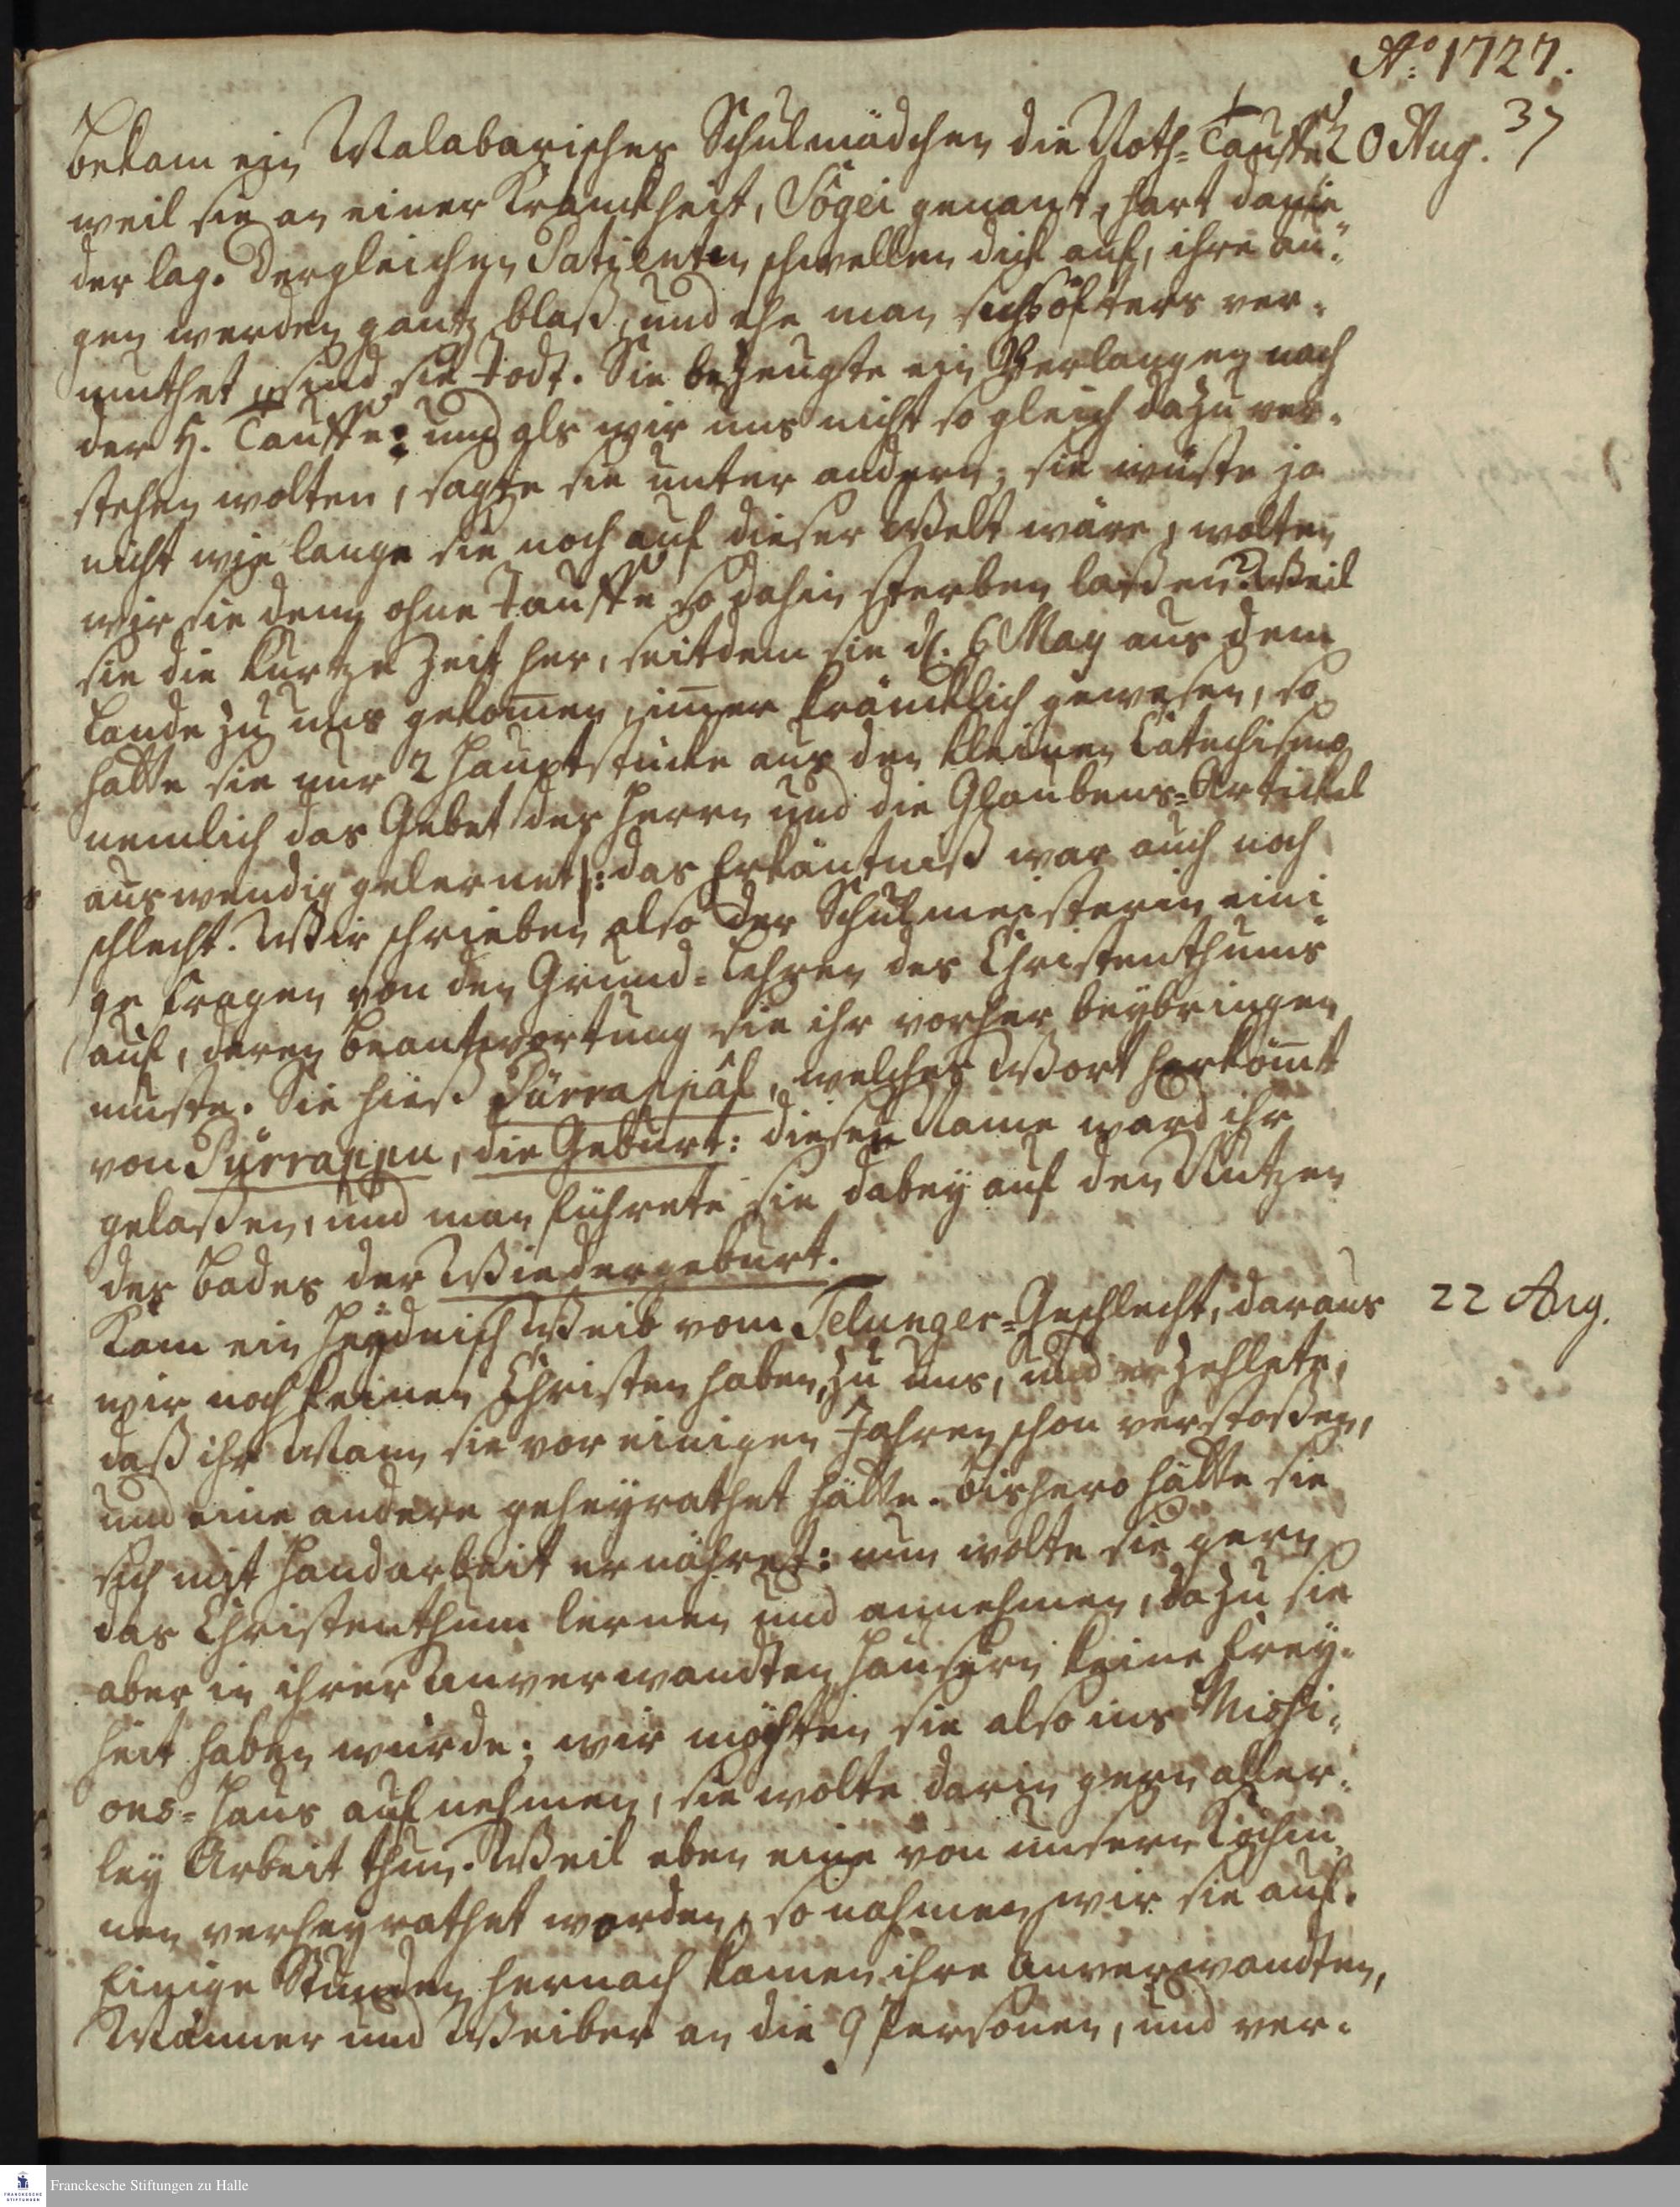 Aº: 1727.
37
20 Aug.
bekam ein Malabarisches Schulmädchen die Noth-Tauffe
weil sie an einer Kranckheit, Sôgei genant, hart danie
der lag. Dergleichen Patienten schwellen dick auf, ihre au-
gen werden gantz blaß, und ehe man sichs öfters ver-
muthet, sind sie todt. Sie bezeugte ein Verlangen nach
der H. Tauffe: und als wir uns nicht so gleich dazu ver-
stehen wolten, sagte sie unter andern, sie wüste ja
nicht wie lange sie noch auf dieser Welt wäre, wolten
wir sie denn ohne Tauffe so dahin sterben laßen? Weil
sie die kurtze Zeit her, seitdem sie d. 6 May aus dem
Lande zu uns gekom̅en, im̅er kräncklich gewesen, so
hatte sie nur 2 Hauptstücke aus den kleinen Catechismo
nemlich das Gebet des Herrn und die Glaubens-Artickel
auswendig gelernet: das Erkäntniß war auch noch
schlecht. Wir schrieben also der Schulmeisterin eini-
ge Fragen von den Grund-Lehren des Christenthums
auf, deren Beantwortung sie ihr vorher beybringen
muste. Sie hieß Pürrappâl, welches Wort herköm̅t
von Pürrappu, die Geburt: dieser Name ward ihr
gelaßen, und man führete sie dabey auf den Nutzen
des Bades der Wiedergeburt.
22 Aug.
Kam ein Heydnisch Weib vom Telunger-Geschlecht, daraus
wir noch keinen Christen haben, zu uns, und erzehlete,
daß ihr Mann sie vor einigen Jahren schon verstoßen,
und eine andere geheyrathet hätte. Bishero hätte sie
sich mit Handarbeit ernähret: nun wolte sie gern
das Christenthum lernen und annehmen, dazu sie
aber in ihrer Anverwandten Häusern keine Frey-
heit haben würde; wir möchten sie also ins Missi-
ons-Haus aufnehmen, sie wolte darin gern aller-
ley Arbeit thun. Weil eben eine von unsern Köchin-
nen verheyrathet worden, so nahmen wir sie auf.
Einige Stunden hernach kamen ihre Anverwandten,
Männer und Weiber an die 9 Personen, und ver-
Franckesche Stiftungen zu Halle